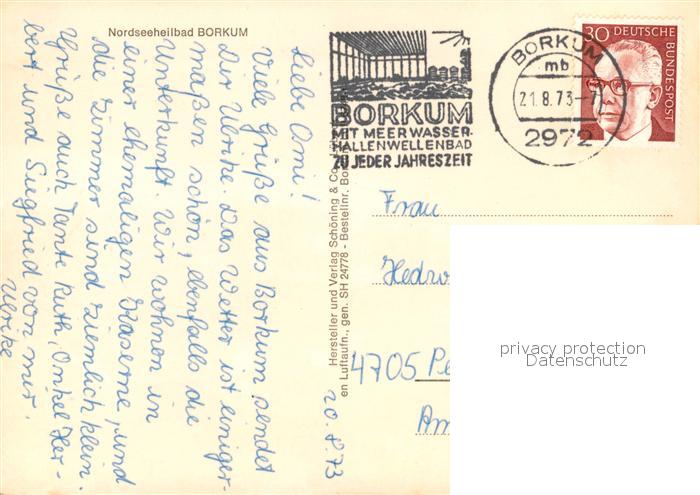 Nordseeheilbad BORKUM
Liebe Omi!
Viele Grüße aus Borkum sendet
Dir Ulrike. Das Wetter ist einiger-
maßen schön, ebenfalls die
Unterkunft. Wir wohnen in
einer ehemaligen Kaserne, und
die Zimmer sind ziemlich klein.
Grüße auch Tante Ruth, Onkel Her-
bert und Siegfried von mir.
Ulrike
20.8.73
Hersteller und Verlag Schöning & Co
en Luftaufn., gen. SH 24778 - Bestellnr. Bor
BORKUM
MIT MEERWASSER-
HALLENWELLENBAD
ZU JEDER JAHRESZEIT
BORKUM
mb
21.8.73-7
2972
30 DEUTSCHE
BUNDESPOST
Frau
Hedw
4705 Pe
Am
privacy protection
Datenschutz